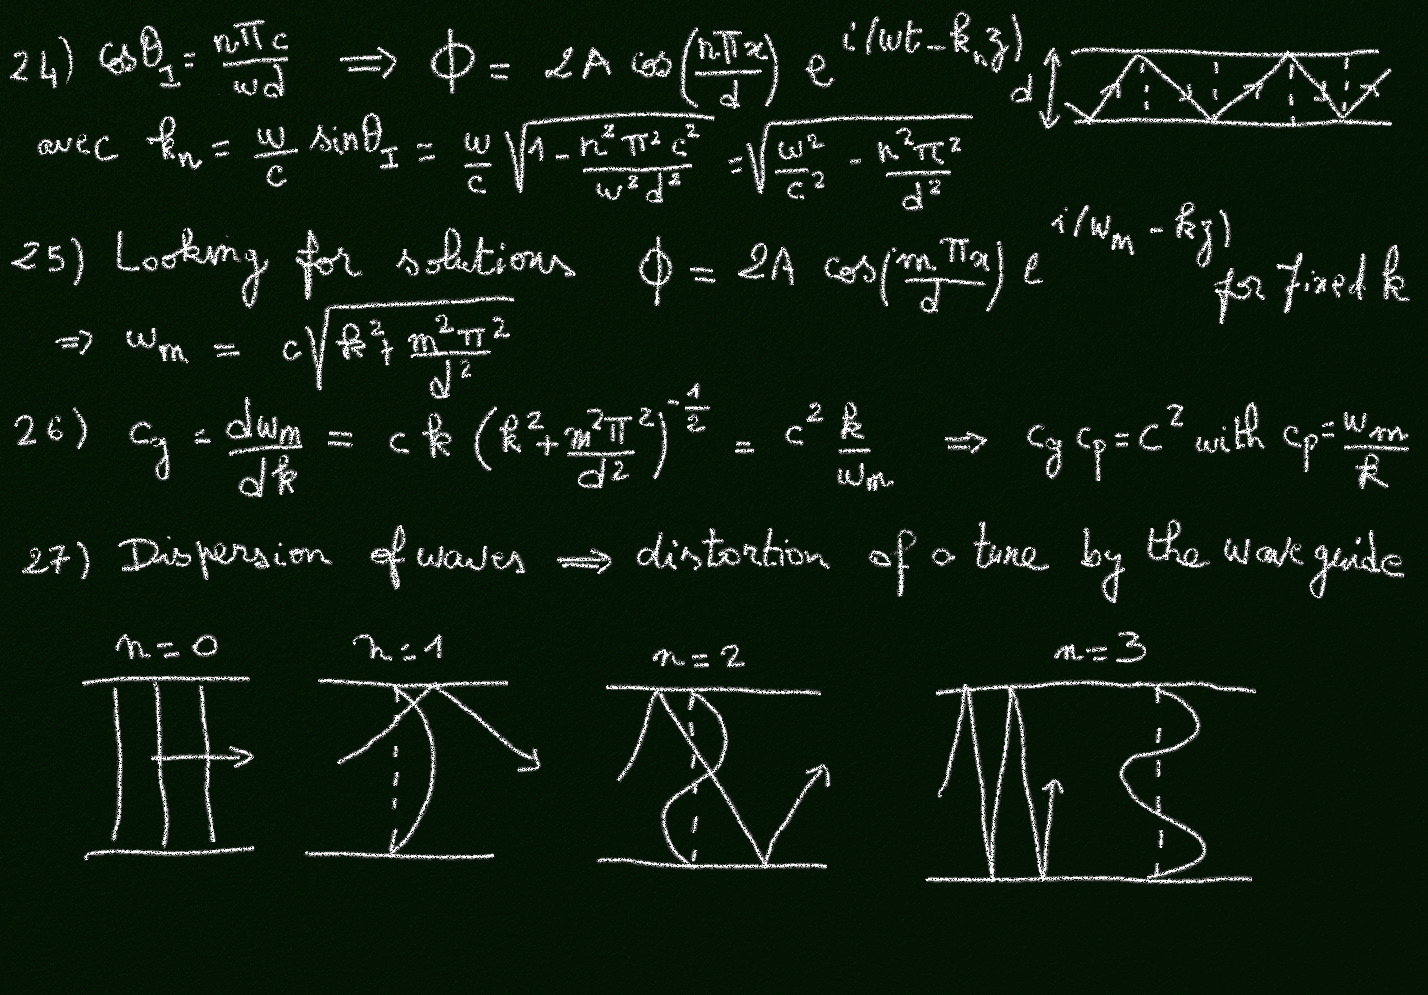 24) cosθ_I = nπc/ωd ⟹ ϕ = 2A cos(nπx/d) e^{i(ωt - k_n z)} d
avec k_n = ω/c sinθ_I = ω/c √(1 - n²π²c²/ω²d²) = √(ω²/c² - n²π²/d²)
25) Looking for solutions ϕ = 2A cos(mπx/d) e^{i(ω_m - kz)} for fixed k
⇒ ω_m = c√(k² + m²π²/d²)
26) c_g = dω_m/dk = c k (k² + m²π²/d²)^{-1/2} = c² k/ω_m ⇒ c_g c_p = c² with c_p = ω_m/k
27) Dispersion of waves ⟹ distortion of a tune by the wave guide
n=0 n=1 n=2 n=3